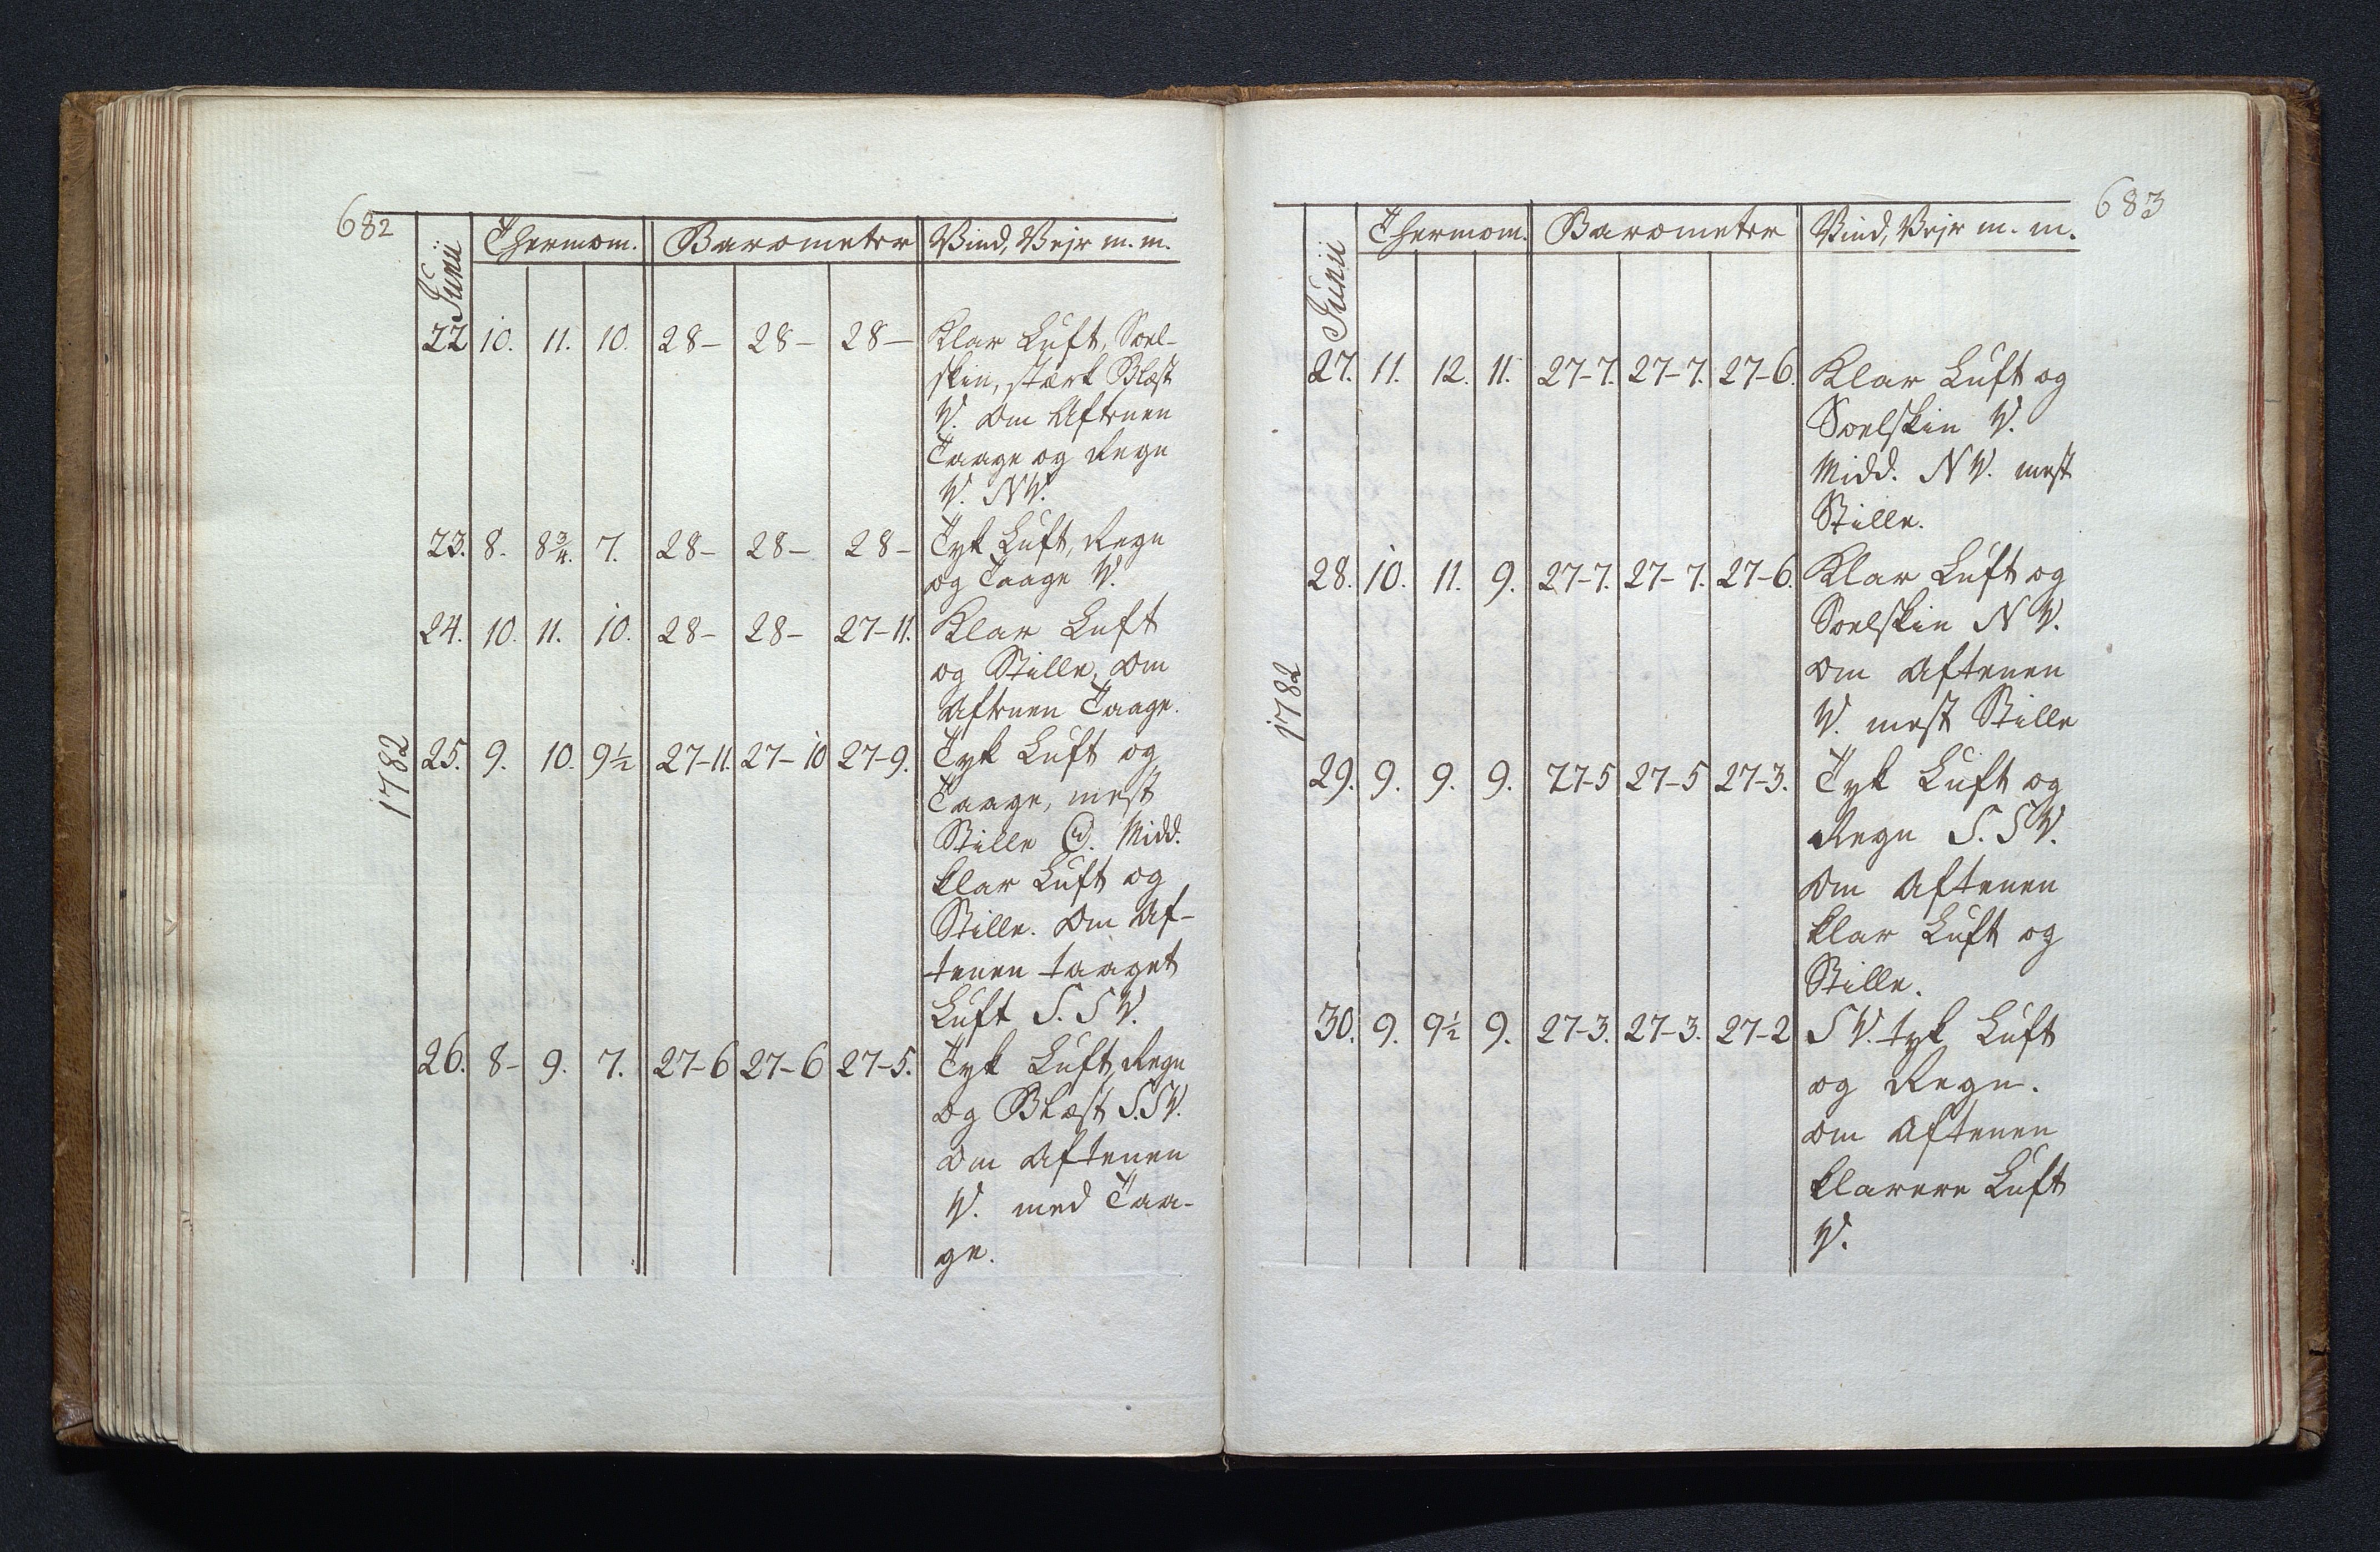 682
Junii Thermom. Barometer Vind, Vejr m. m.
22 10. 11. 10. 28– 28– 28– Klar Luft, Soel-
skin, stærk Blæst
V. Om Aftenen
Taage og Regn
V. NV.
23. 8. 8¾. 7. 28– 28– 28– Tyk Luft, Regn
og Taage V.
24. 10. 11. 10. 28– 28– 27–11. Klar Luft
og Stille, Om
Aftenen Taage.
1782
25. 9. 10. 9½ 27–11. 27–10 27–9. Tyk Luft og
Taage, mest
Stille Midd.
klar Luft og
Stille. Om Af-
tenen taaget
Luft S. SV.
26. 8– 9. 7. 27–6 27–6 27–5. Tyk Luft, Regn
og Blæst S.SV.
Om Aftenen
V. med Taa-
ge.
683
Junii Thermom. Barometer Vind, Vejr m. m.
27. 11. 12. 11. 27–7. 27–7. 27–6. Klar Luft og
Soelskin V.
Midd. NV. mest
Stille.
28. 10. 11. 9. 27–7. 27–7. 27–6. Klar Luft og
Soelskin NV.
Om Aftenen
V. mest Stille
1782
29. 9. 9. 9. 27–5 27–5 27–3. Tyk Luft og
Regn S. SV.
Om Aftenen
klar Luft og
Stille.
30. 9. 9½ 9. 27–3. 27–3. 27–2 SV. tyk Luft
og Regn.
Om Aftenen
klarere Luft
V.